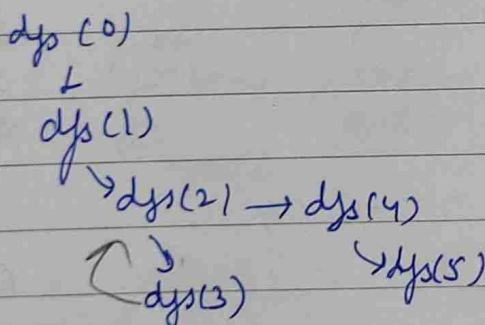 dfs(0)
↓
dfs(1)
↘ dfs(2) → dfs(4)
↘ ↘ dfs(5)
dfs(3)